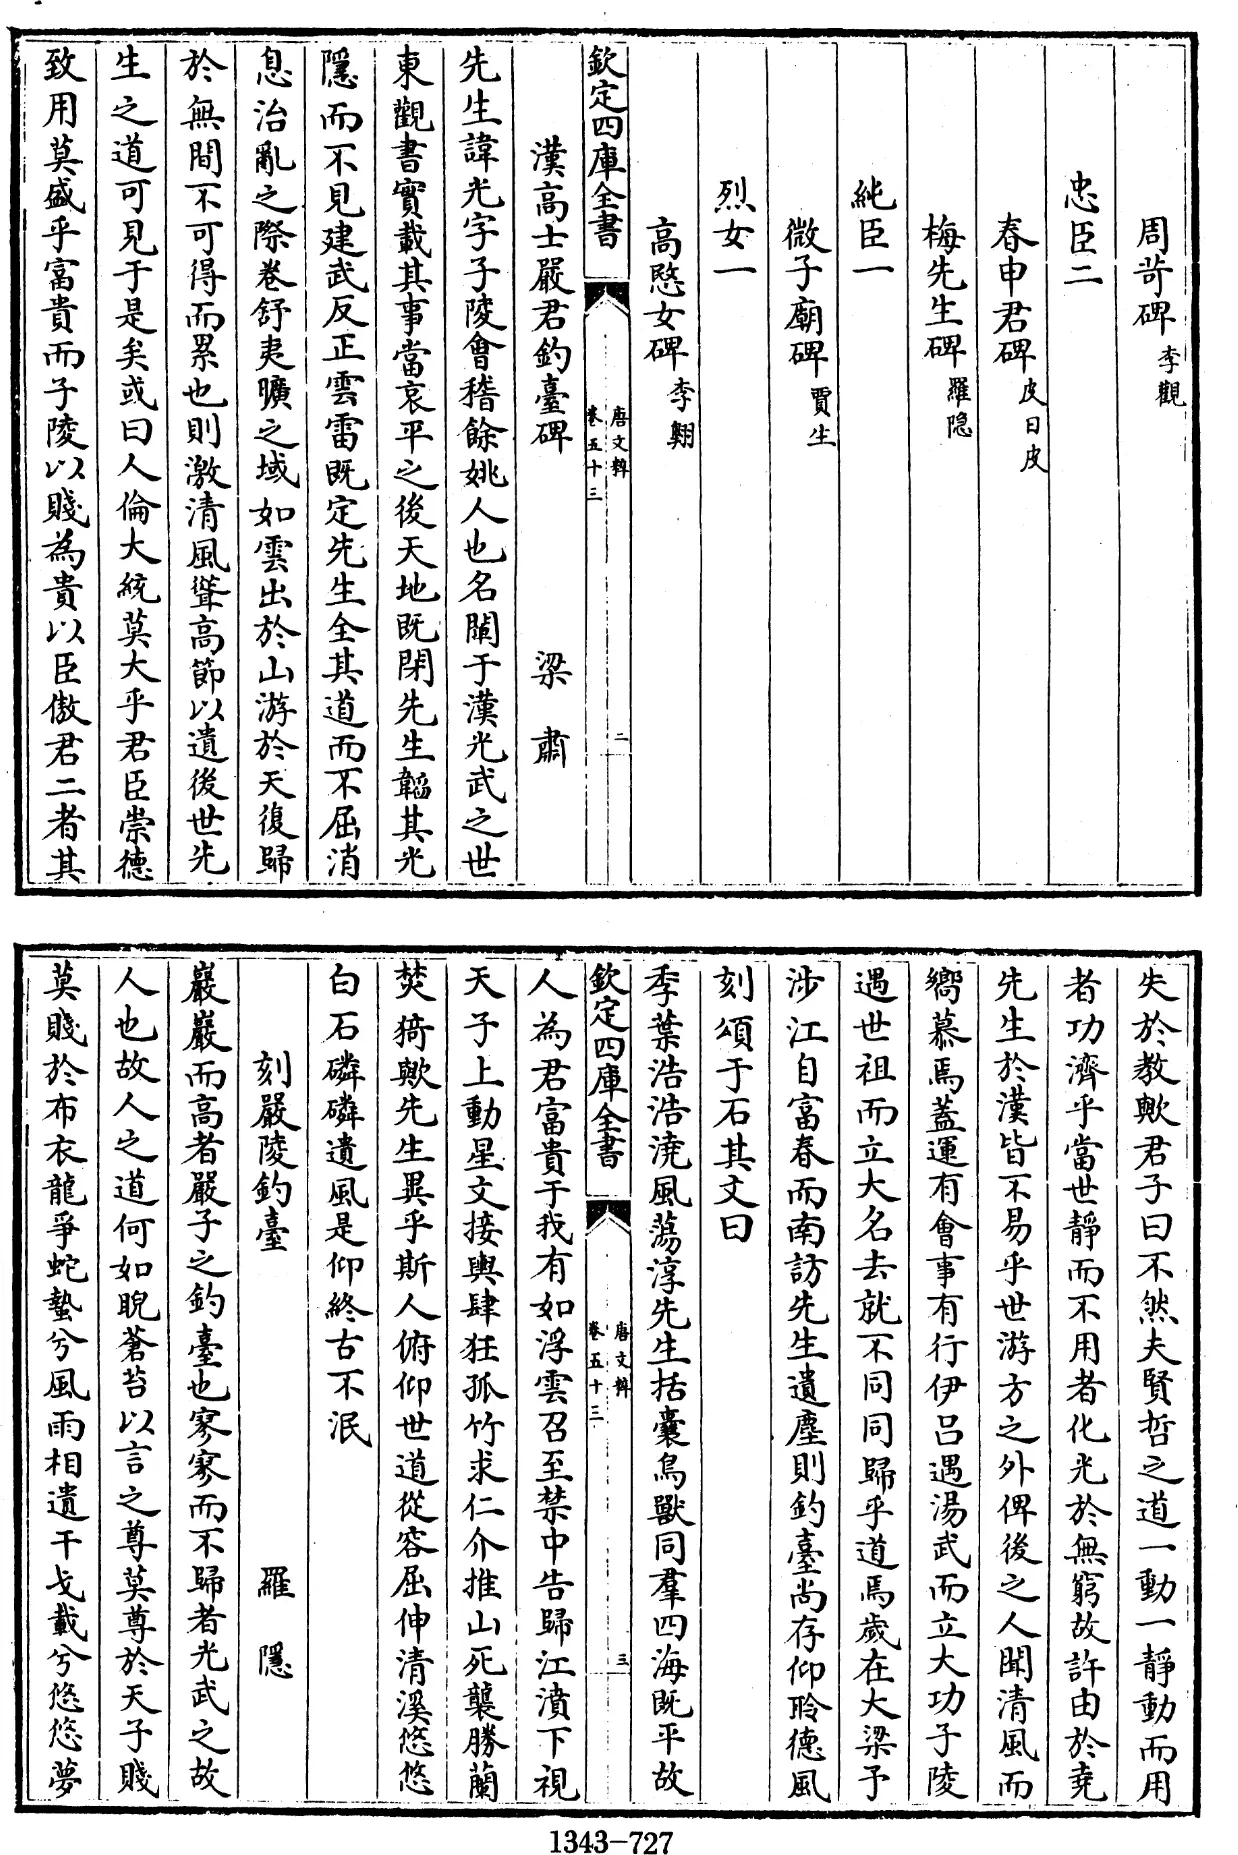 周苛碑 李觀
忠臣二
春申君碑 皮日皮
梅先生碑 羅隐
純臣一
微子廟碑 賈生
烈女一
高愍女碑 李翺
欽定四庫全書
唐文粹
卷五十三
二
漢高士嚴君釣臺碑 梁肅
先生諱光字子陵會稽餘姚人也名闡于漢光武之世
東觀書實載其事當哀平之後天地既閉先生韜其光
隱而不見建武反正雲雷既定先生全其道而不屈消
息治亂之際卷舒夷曠之域如雲出於山游於天復歸
於無間不可得而累也則激清風聳高節以遺後世先
生之道可見于是矣或曰人倫大統莫大乎君臣崇德
致用莫盛乎富貴而子陵以賤為貴以臣傲君二者其
失於教歟君子曰不然夫賢哲之道一動一靜動而用
者功濟乎當世靜而不用者化光於無窮故許由於堯
先生於漢皆不易乎世游方之外俾後之人聞清風而
嚮慕焉蓋運有會事有行伊呂遇湯武而立大功子陵
遇世祖而立大名去就不同同歸乎道焉歲在大梁予
涉江自富春而南訪先生遺塵則釣臺尚存仰聆德風
刻頌于石其文曰
季葉浩浩澆風蕩淳先生括囊鳥獸同羣四海既平故
欽定四庫全書
唐文粹
卷五十三
三
人為君富貴于我有如浮雲召至禁中告歸江濆下視
天子上動星文接輿肆狂孤竹求仁介推山死龔勝蘭
焚猗歟先生異乎斯人俯仰世道從容屈伸清溪悠悠
白石磷磷遺風是仰終古不泯
刻嚴陵釣臺 羅隱
巖巖而高者嚴子之釣臺也寥寥而不歸者光武之故
人也故人之道何如睨蒼苔以言之尊莫尊於天子賤
莫賤於布衣龍爭蛇蟄兮風雨相遺干戈載兮悠悠夢
1343-727